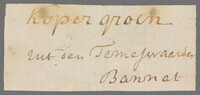 Koper groen
uit den Temeswaarder
Bannat